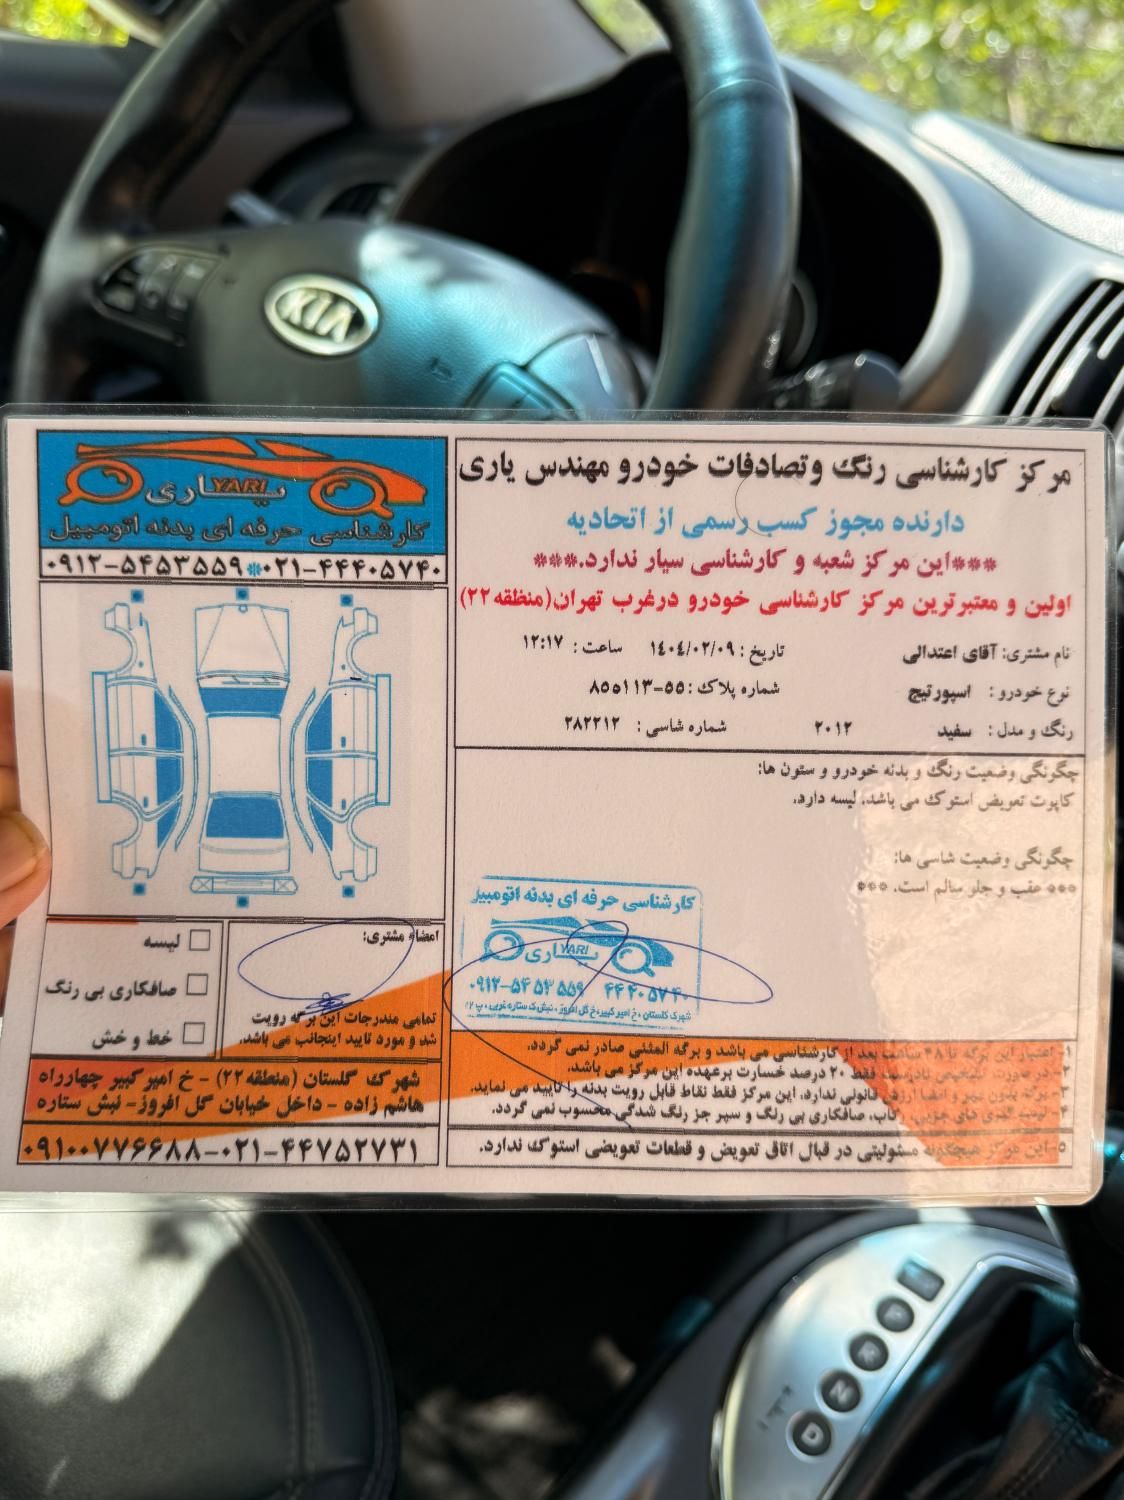 KIA
یاری YARI
کارشناسی حرفه ای بدنه اتومبیل
۰۹۱۲-۵۴۵۳۵۵۹*۰۲۱-۴۴۴۰۵۷۴۰
مرکز کارشناسی رنگ وتصادفات خودرو مهندس یاری
دارنده مجوز کسب رسمی از اتحادیه
***این مرکز شعبه و کارشناسی سیار ندارد.***
اولین و معتبرترین مرکز کارشناسی خودرو درغرب تهران(منظقه۲۲)
نام مشتری: آقای اعتدالی تاریخ : ۱۴۰۴/۰۲/۰۹ ساعت : ۱۲:۱۷
نوع خودرو : اسپورتیج شماره پلاک :۵۵-۸۵۵۱۱۳
رنگ و مدل : سفید ۲۰۱۲ شماره شاسی : ۲۸۲۲۱۲
چگونگی وضعیت رنگ و بدنه خودرو و ستون ها:
کاپوت تعویض استوک می باشد. لیسه دارد.
چگونگی وضعیت شاسی ها:
*** عقب و جلو سالم است. ***
کارشناسی حرفه ای بدنه اتومبیل
یاری YARI
۰۹۱۲-۵۴۵۳۵۵۹ ۴۴۴۰۵۷۴۰
شهرک گلستان ، خ امیر کبیر، خ گل افروز ، نبش ک ستاره غربی ، پ ۱۲
امضاء مشتری:
تمامی مندرجات این برگه رویت
شد و مورد تایید اینجانب می باشد.
لیسه
صافکاری بی رنگ
خط و خش
۱- اعتبار این برگه تا ۴۸ ساعت بعد از کارشناسی می باشد و برگه المثنی صادر نمی گردد.
۲- در صورت تشخیص نادرست فقط ۲۰ درصد خسارت برعهده این مرکز می باشد.
۳- برگه بدون مهر و امضا ارزش قانونی ندارد. این مرکز فقط نقاط قابل رویت بدنه را تایید می نماید.
۴- لیسه گیری های جزیی، رکاب، صافکاری بی رنگ و سپر جز رنگ شدگی محسوب نمی گردد.
۵- این مرکز هیچگونه مسئولیتی در قبال اتاق تعویض و قطعات تعویضی استوک ندارد.
شهرک گلستان (منطقه۲۲) - خ امیر کبیر چهارراه
هاشم زاده - داخل خیابان گل افروز- نبش ستاره
۰۹۱۰۰۷۷۶۶۸۸-۰۲۱-۴۴۷۵۲۷۳۱
P
R
N
D